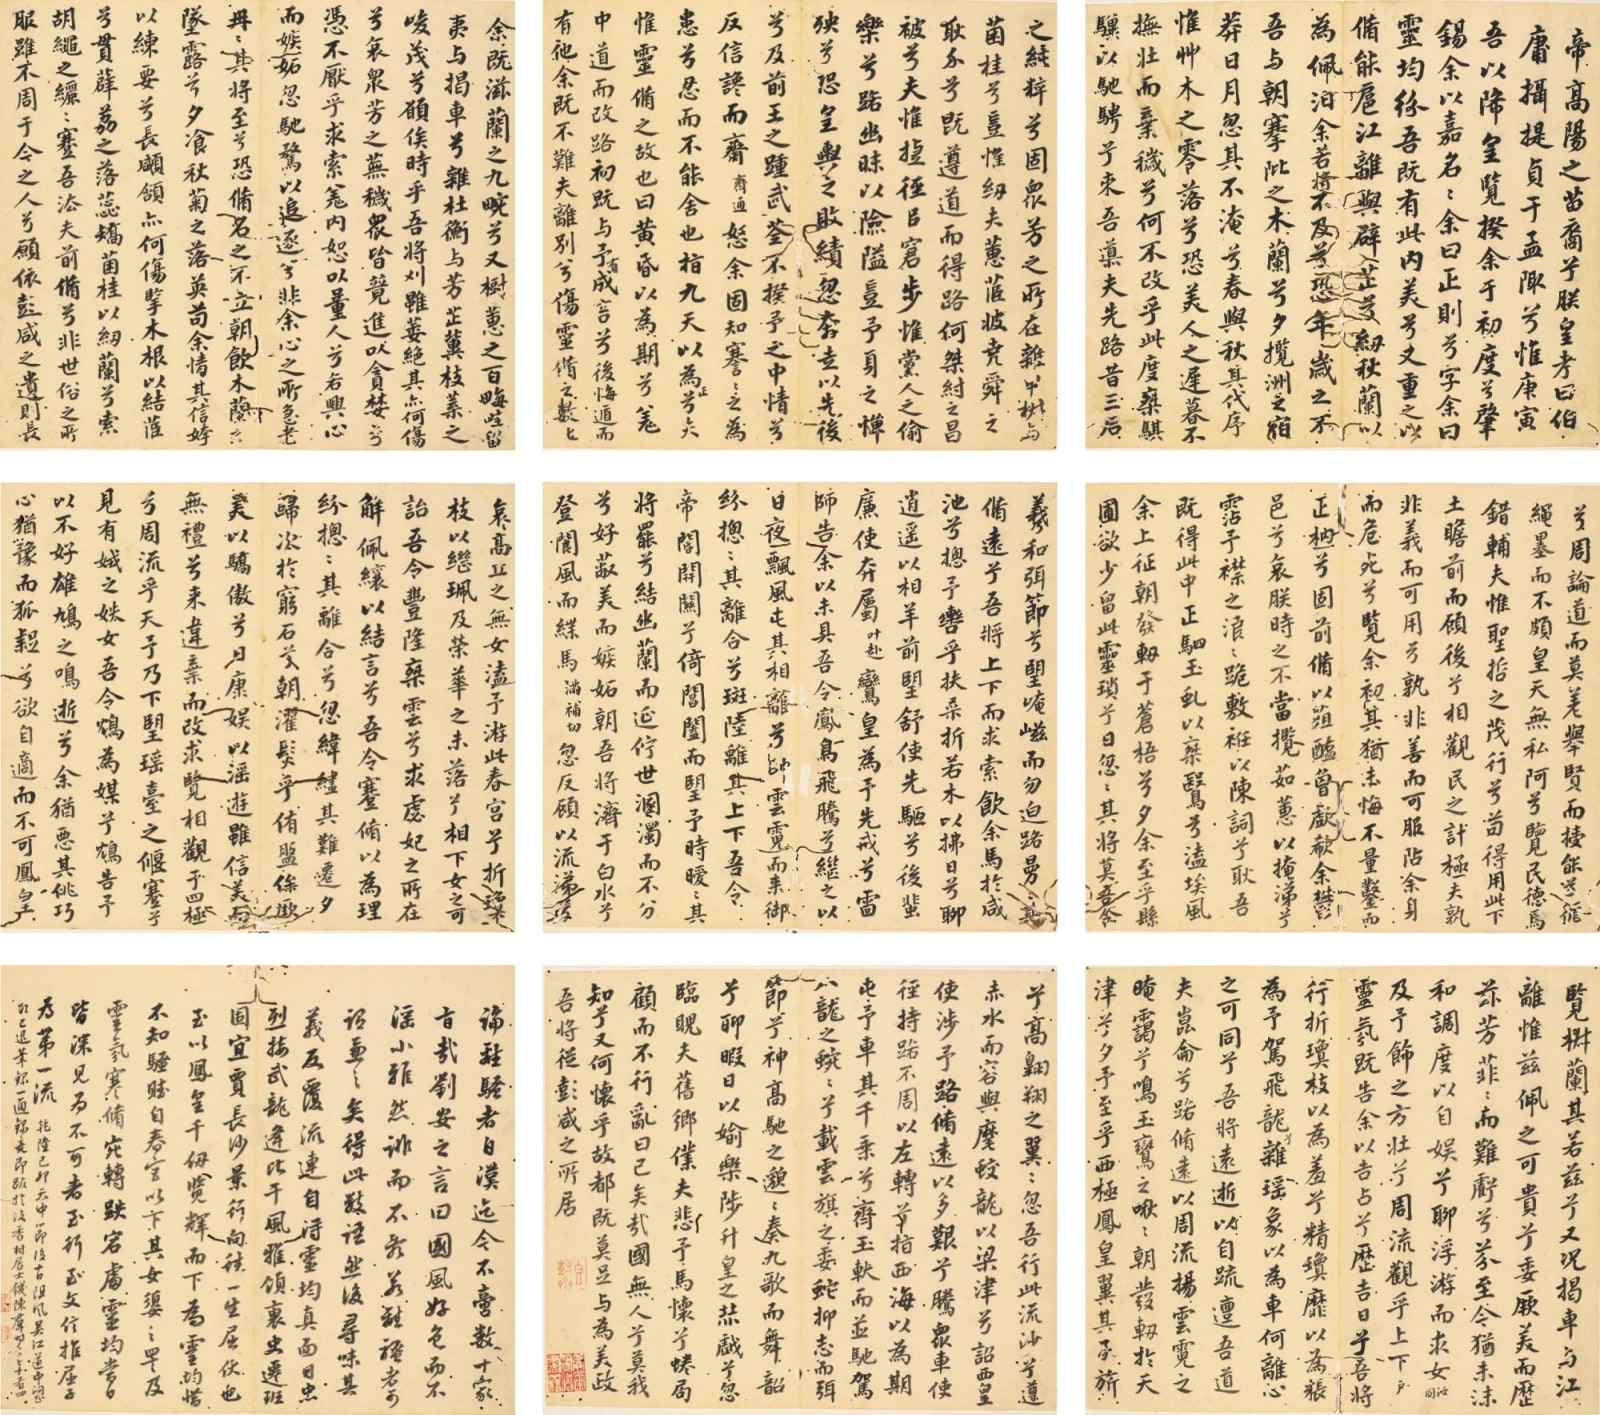 帝高陽之苗裔兮朕皇考曰伯
庸攝提貞于孟陬兮惟庚寅
吾以降皇覽揆余于初度兮肇
錫余以嘉名々余曰正則兮字余曰
靈均紛吾既有此內美兮又重之以
脩能扈江離與辟芷兮紉秋蘭以
為佩汩余若將不及兮恐年歲之不
吾與朝搴阰之木蘭兮夕攬洲之宿
莽日月忽其不淹兮春與秋其代序
惟艸木之零落兮恐美人之遲暮不
撫壯而棄穢兮何不改乎此度椉騏
驥以馳騁兮來吾導夫先路昔三后
之純粹兮固衆芳之所在雜申椒與
菌桂兮豈惟紉夫蕙茝彼堯舜之
耿介兮既遵道而得路何桀紂之昌
被兮夫惟捷徑㠯窘步惟黨人之偷
樂兮路幽昧以險隘豈予身之憚
殃兮恐皇輿之敗績忽奔走以先後
兮及前王之踵武荃不揆予之中情兮
反信讒而齌齊通怒余固知謇々之為
患兮忍而不能舍也指九天以為正兮夫
惟靈脩之故也曰黃昏以為期兮羌
中道而改路初既與予成言兮後悔遁而
有他余既不難夫離別兮傷靈脩之數化
余既滋蘭之九畹兮又樹蕙之百畮畦留
夷与揭車兮雜杜衡与芳芷冀枝葉之
峻茂兮願俟時乎吾將刈雖萎絕其亦何傷
兮哀衆芳之蕪穢衆皆競進以貪婪兮
憑不厭乎求索羌內恕以量人兮各興心
而嫉妬忽馳騖以追逐兮非余心之所急老
冉々其將至兮恐脩名之不立朝飲木蘭之
墜露兮夕飡秋菊之落英苟余情其信姱
以練要兮長顑頷亦何傷擥木根以結茝
兮貫薜荔之落蕊矯菌桂以紉蘭兮索
胡繩之纚々謇吾法夫前脩兮非世俗之所
服雖不周于今之人兮願依彭咸之遺則長
兮周論道而莫差舉賢而授能兮循
繩墨而不頗皇天無私阿兮覽民德焉
錯輔夫惟聖哲之茂行兮苟得用此下
土瞻前而顧後兮相觀民之計極夫孰
非義而可用兮孰非善而可服阽余身
而危死兮覽余初其猶未悔不量鑿而
正枘兮固前脩以菹醢曾歔欷余鬱
邑兮哀朕時之不當攬茹蕙以掩涕兮
霑予襟之浪々跪敷衽以陳詞兮耿吾
既得此中正駟玉虬以椉鷖兮溘埃風
余上征朝發軔于蒼梧兮夕余至乎縣
圃欲少留此靈瑣兮日忽々其將莫吾令
羲和弭節兮望崦嵫而勿迫路曼々其
脩遠兮吾將上下而求索飲余馬於咸
池兮摠予轡乎扶桑折若木以拂日兮聊
逍遥以相羊前望舒使先驅兮後蜚
廉使奔屬叶赴鸞皇為予先戒兮雷
師告余以未具吾令鳳鳥飛騰兮繼之以
日夜飄風屯其相離兮帥雲霓而來御
紛摠々其離合兮斑陸離其上下吾令
帝閽開關兮倚閶闔而望予時曖々其
將罷兮結幽蘭而延佇世溷濁而不分
兮好蔽美而嫉妬朝吾將濟于白水兮
登閬風而緤馬滿補切忽反顧以流涕兮
哀高丘之無女溘予游此春宮兮折瓊
枝以繼珮及榮華之未落兮相下女之可
詒吾令豐隆椉雲兮求虙妃之所在
解佩纕以結言兮吾令蹇脩以為理
紛摠々其離合兮忽緯繣其難遷夕
歸次於窮石兮朝濯髮乎洧盤保厥
美以驕傲兮日康娛以淫遊雖信美而
無禮兮來違棄而改求覽相觀于四極
兮周流乎天予乃下望瑤臺之偃蹇兮
見有娀之佚女吾令鴆為媒兮鴆告予
以不好雄鳩之鳴逝兮余猶惡其佻巧
心猶豫而狐疑兮欲自適而不可鳳皇
覽椒蘭其若茲兮又況揭車与江
離惟茲佩之可貴兮委厥美而歷
茲芳菲々而難虧兮芬至今猶未沬
和調度以自娛兮聊浮游而求女汝同
及予飾之方壯兮周流觀乎上下戶
靈氛既告余以吉占兮歷吉日乎吾將
行折瓊枝以為羞兮精瓊靡以為粻
為予駕飛龍兮雜瑤象以為車何離心
之可同兮吾將遠逝以自疏邅吾道
夫崑侖兮路脩遠以周流揚雲霓之
晻靄兮鳴玉鸞之啾々朝發軔於天
津兮夕予至乎西極鳳皇翼其承旂
兮高翺翔之翼々忽吾行此流沙兮遵
赤水而容與麾蛟龍以梁津兮詔西皇
使涉予路脩遠以多艱兮騰衆車使
徑持路不周以左轉兮指西海以為期
屯予車其千乘兮齊玉軑而並馳駕
八龍之蜿々兮載雲旗之委蛇抑志而弭
節兮神高馳之邈々奏九歌而舞韶
兮聊暇日以媮樂陟升皇之赫戲兮忽
臨睨夫舊鄉僕夫悲予馬懷兮蜷局
顧而不行亂曰已矣哉國無人兮莫我
知兮又何懷乎故都既莫足与為美政
吾將從彭咸之所居
論離騷者自漢迄今不啻數十家
旨哉劉安之言曰國風好色而不
淫小雅怨誹而不亂若離騷者可
謂兼之矣得此數語然後尋味其
義反覆流連自得靈均真面目忠
烈接武龍逢比干風雅頌裏史遷班
固宜賈長沙景行向往一生屈伏也
至以鳳皇千仞覽輝而下為靈均惜
不知騷賦自春宮以下其女嬃々詈及
靈氛蹇脩宛轉跌宕處靈均當日
皆深見為不可者至行至文信推屈子
為第一流 乾隆己卯天中節後